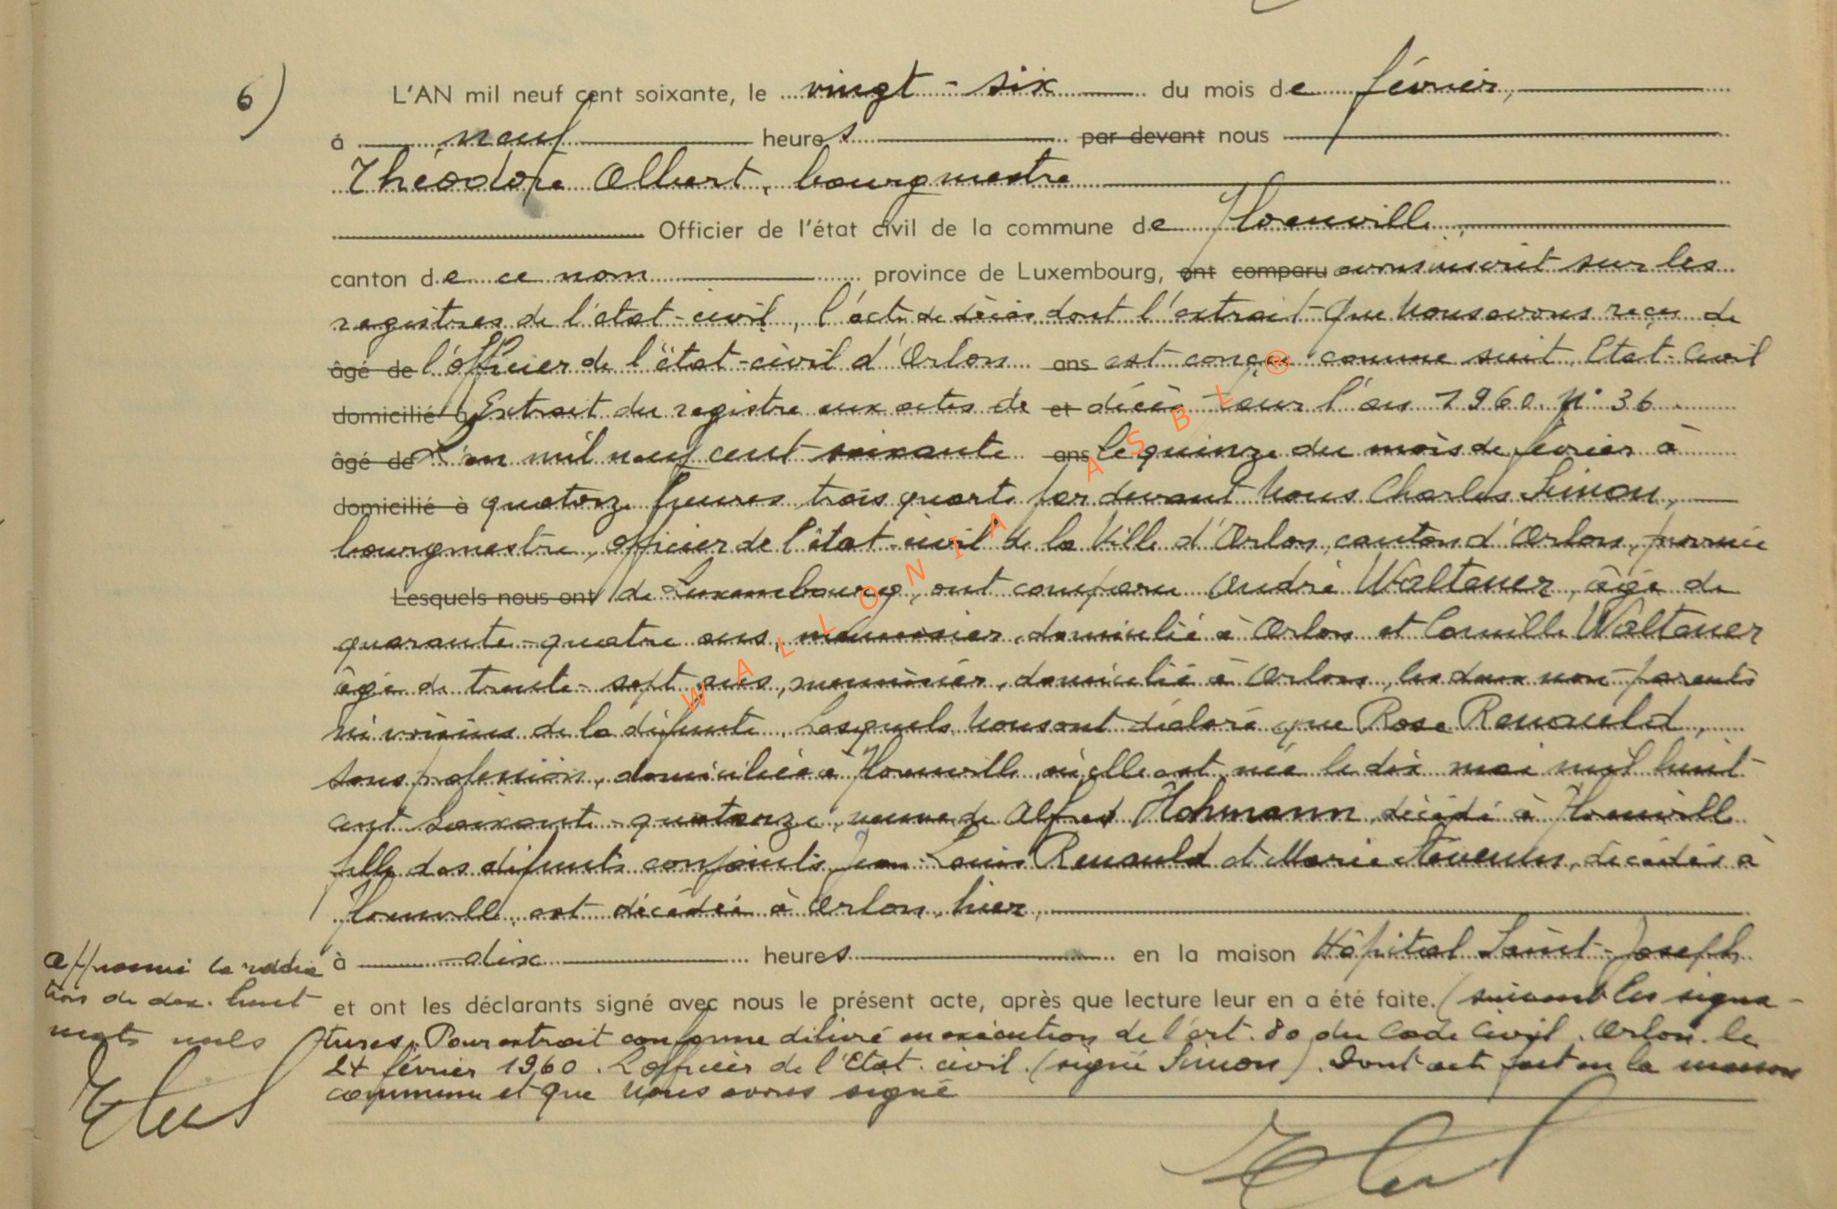 6)
L'AN mil neuf cent soixante, le vingt-six du mois de février,
à neuf heures par devant nous
Théodore Albert, bourgmestre
Officier de l'état civil de la commune de Hoenville,
canton de ce nom province de Luxembourg, ont comparu avons inscrit sur les
registres de l'état-civil, l'acte de décès dont l'extrait que nous avons reçu de
âgé de l'officier de l'état-civil d'Arlon ans est conçu comme suit. Etat-Civil
domicilié à Extrait du registre aux actes de et décès pour l'an 1960 N° 36
âgé de L'an mil neuf cent soixante ans le quinze du mois de février à
domicilié à quatorze heures trois quarts par devant Nous Charles Simon,
bourgmestre, officier de l'état-civil de la Ville d'Arlon, canton d'Arlon, province
Lesquels nous ont de Luxembourg, ont comparu André Waltener, âgé de
quarante-quatre ans, menuisier, domicilié à Arlon et Camille Waltener
âgé de trente-sept ans, menuisier, domicilié à Arlon, les deux non parents
ni voisins de la défunte. Lesquels nous ont déclaré que Rose Renauld,
sans profession, domiciliée à où elle est née le dix mai mil huit
cent soixante-quatorze, veuve de Alfred Hohmann décédé à
fille des défunts conjoints Jean-Louis Renauld et Marie décédés à
est décédée à Arlon, hier,
à dix heures en la maison Hôpital Saint-Joseph
et ont les déclarants signé avec nous le présent acte, après que lecture leur en a été faite. (suivent les signa-
tures. Pour extrait conforme délivré en exécution de l'art. 80 du Code Civil. Arlon le
24 février 1960. L'officier de l'Etat-civil (signé Simon). Dont acte fait en la maison
commune et que nous avons signé
Approuvé la radia
tion de dix-huit
mots nuls
WALLONIA ASBL ®